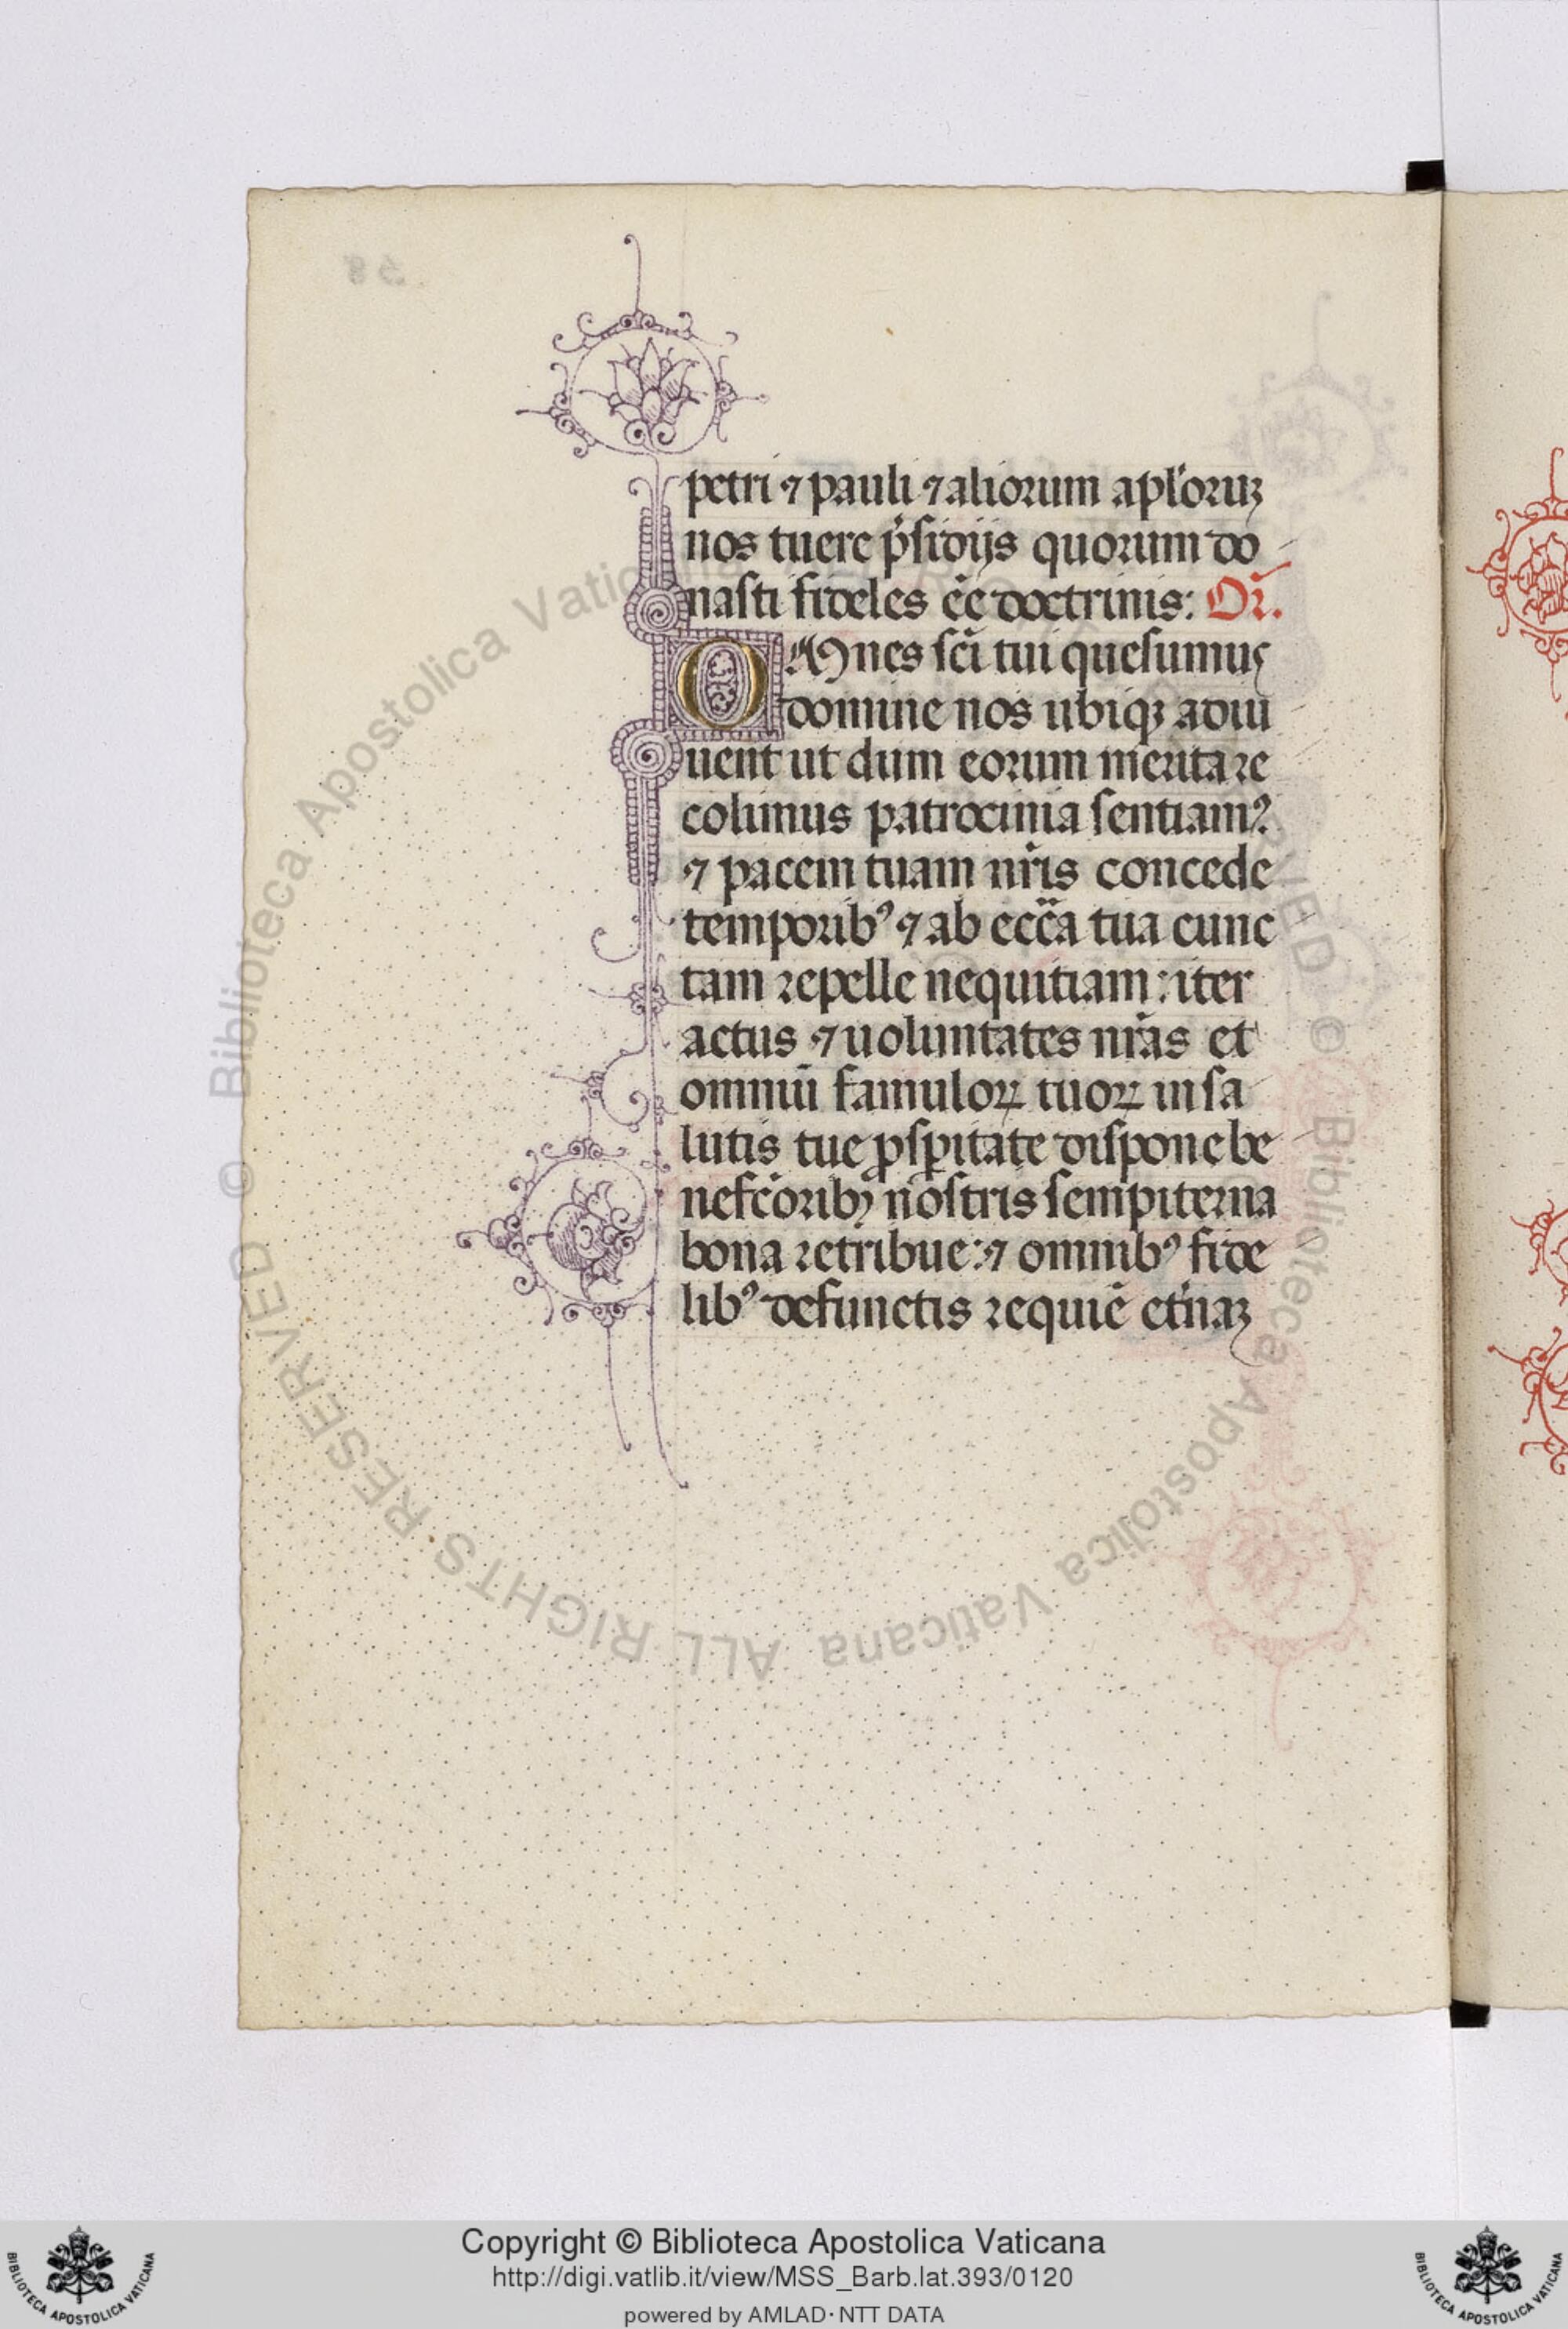 petri ⁊ pauli ⁊ aliorum apl'oruꝫ
nos tuere p̾sidijs quorum do
nasti fideles ēē doctrinis: Or̄.
OMnes sc̄i tui quesumus
domine nos ubiqꝫ adiu
uent ut dum eorum merita re
colimus patrocinia sentiamꝰ
⁊ pacem tuam nr̄is concede
temporibꝰ ⁊ ab ecc̄a tua cunc
tam repelle nequitiam: iter
actus ⁊ uoluntates nr̄as et
omniū famuloꝝ tuoꝝ in sa
lutis tue ꝓsꝑitate dispone be
nefc̄oribꝫ nostris sempiterna
bona retribue: ⁊ omnibꝰ fide
libꝰ defunctis requiē et̾naꝫ
© Biblioteca Apostolica Vaticana ALL RIGHTS RESERVED
Copyright © Biblioteca Apostolica Vaticana
http://digi.vatlib.it/view/MSS_Barb.lat.393/0120
powered by AMLAD·NTT DATA
BIBLIOTECA APOSTOLICA VATICANA
BIBLIOTECA APOSTOLICA VATICANA